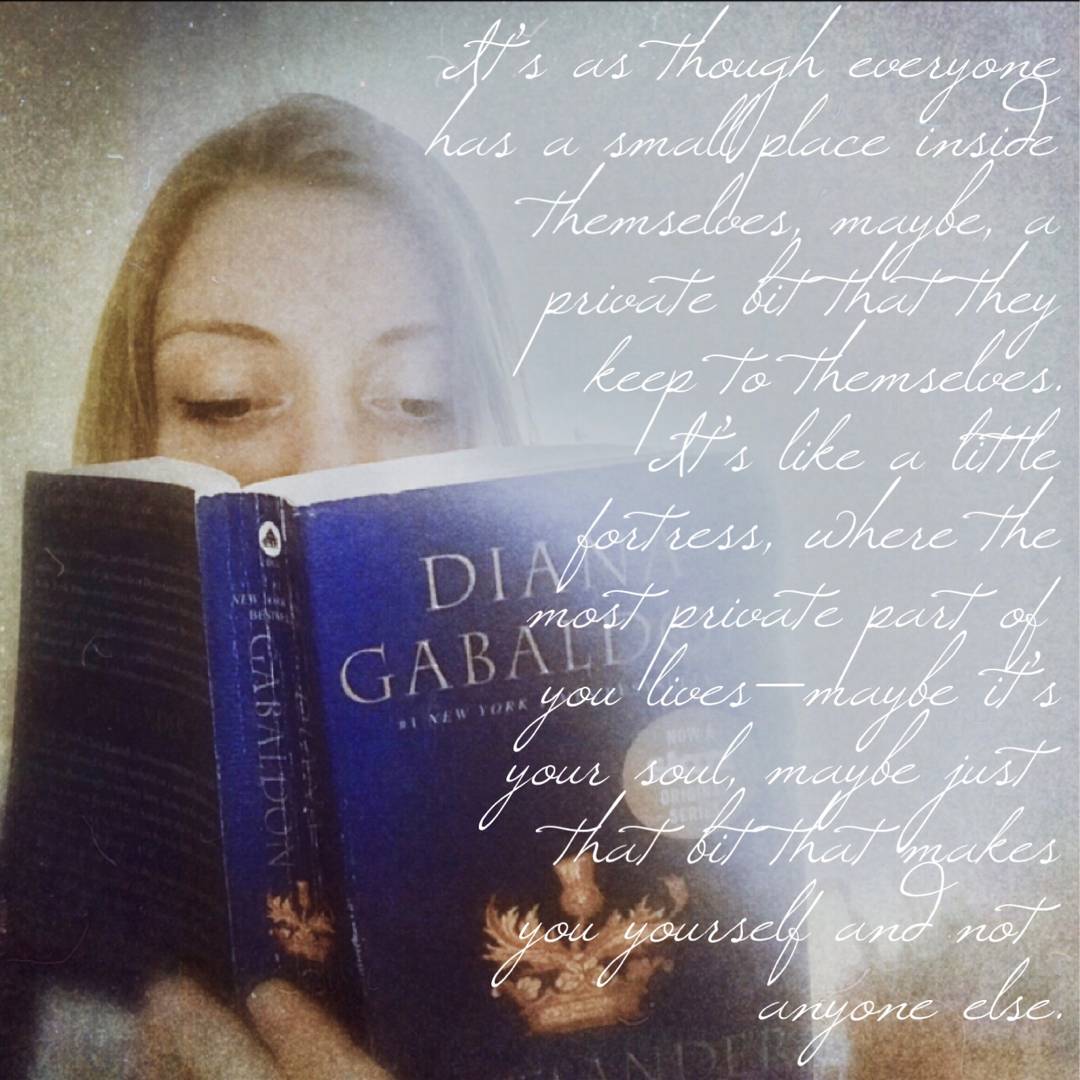 It's as though everyone
has a small place inside
themselves, maybe, a
private bit that they
keep to themselves.
It's like a little
fortress, where the
most private part of
you lives—maybe it's
your soul, maybe just
that bit that makes
you yourself and not
anyone else.
DIANA
GABALD
#1 NEW YORK
NOW A
ORIGINAL
SERIES
NEW YORK
GABALDON